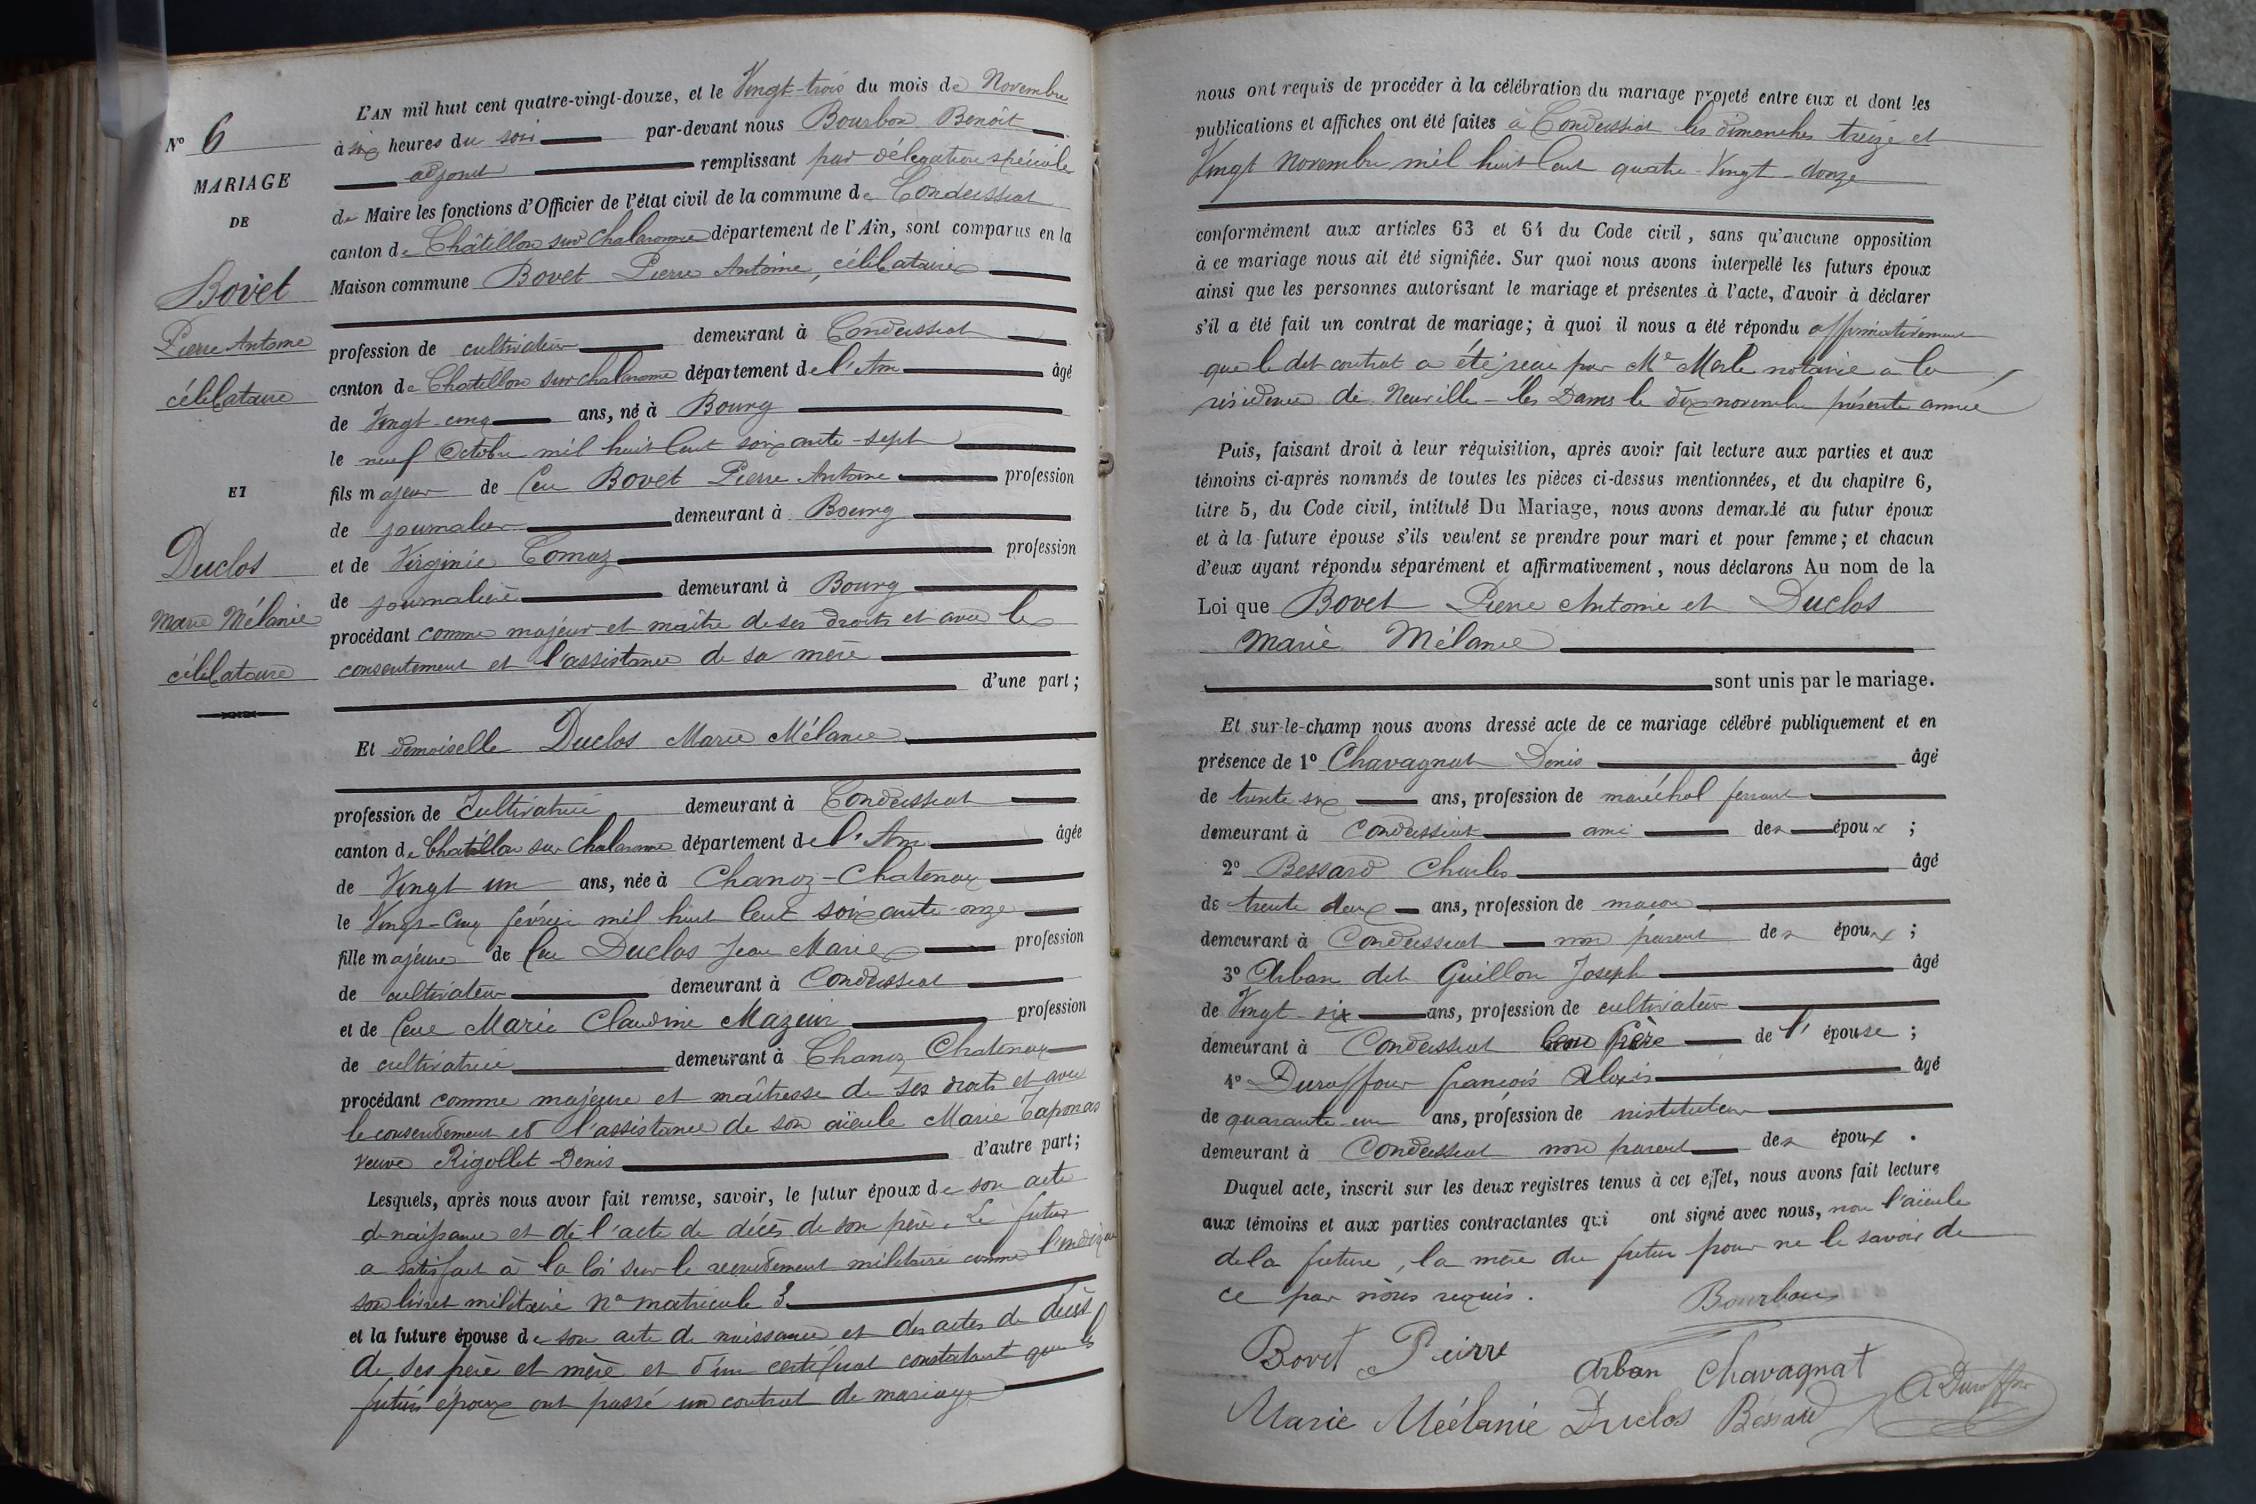 N° 6
MARIAGE
DE
Bovet
Pierre Antoine
célibataire
ET
Duclos
Marie Mélanie
célibataire
L'AN mil huit cent quatre-vingt-douze, et le Vingt-trois du mois de Novembre
à six heures du soir par-devant nous Bourbon Benoît
adjoint remplissant par délégation spéciale
de Maire les fonctions d'Officier de l'état civil de la commune de Condeissiat
canton de Châtillon sur Chalaronne département de l'Ain, sont comparus en la
Maison commune Bovet Pierre Antoine, célibataire
profession de cultivateur demeurant à Condeissiat
canton de Chatillon sur Chalaronne département de l'Ain âgé
de Vingt-cinq ans, né à Bourg
le neuf Octobre mil huit Cent soixante-sept
fils majeur de feu Bovet Pierre Antoine profession
de journalier demeurant à Bourg
et de Virginie Comaz profession
de journalière demeurant à Bourg
procédant comme majeur et maître de ses droits et avec le
consentement et l'assistance de sa mère
d'une part;
Et demoiselle Duclos Marie Mélanie
profession de Cultivatrice demeurant à Condeissiat
canton de Chatillon sur Chalaronne département de l'Ain âgée
de Vingt un ans, née à Chanoz-Chatenay
le Vingt-Cinq février mil huit Cent soixante-onze
fille majeure de feu Duclos Jean Marie profession
de cultivateur demeurant à Condeissiat
et de feue Marie Claudine Mazuir profession
de cultivatrice demeurant à Chanoz Chatenay
procédant comme majeure et maîtresse de ses droits et avec
le consentement et l'assistance de son aïeule Marie Taponas
veuve Rigollet Denis d'autre part;
Lesquels, après nous avoir fait remise, savoir, le futur époux de son acte
de naissance et de l'acte de décès de son père. Le futur
a satisfait à la loi sur le recrutement militaire comme l'indique
son livret militaire N° matricule 3
et la future épouse de son acte de naissance et des actes de décès
de ses père et mère et d'un certificat constatant que les
futurs époux ont passé un contrat de mariage
nous ont requis de procéder à la célébration du mariage projeté entre eux et dont les
publications et affiches ont été faites à Condeissiat les dimanches treize et
Vingt Novembre mil huit Cent quatre-Vingt-douze
conformément aux articles 63 et 64 du Code civil, sans qu'aucune opposition
à ce mariage nous ait été signifiée. Sur quoi nous avons interpellé les futurs époux
ainsi que les personnes autorisant le mariage et présentes à l'acte, d'avoir à déclarer
s'il a été fait un contrat de mariage; à quoi il nous a été répondu affirmativement
que le dit contrat a été reçu par Me Merle notaire à la
résidence de Neuville-les Dames le dix novembre présente année
Puis, faisant droit à leur réquisition, après avoir fait lecture aux parties et aux
témoins ci-après nommés de toutes les pièces ci-dessus mentionnées, et du chapitre 6,
titre 5, du Code civil, intitulé Du Mariage, nous avons demandé au futur époux
et à la future épouse s'ils veulent se prendre pour mari et pour femme; et chacun
d'eux ayant répondu séparément et affirmativement, nous déclarons Au nom de la
Loi que Bovet Pierre Antoine et Duclos
Marie Mélanie
sont unis par le mariage.
Et sur-le-champ nous avons dressé acte de ce mariage célébré publiquement et en
présence de 1° Chavagnat Denis âgé
de trente six ans, profession de maréchal ferrant
demeurant à Condeissiat ami des époux ;
2° Bessard Charles âgé
de trente deux ans, profession de maçon
demeurant à Condeissiat non parent des époux ;
3° Arban dit Guillon Joseph âgé
de Vingt-six ans, profession de cultivateur
demeurant à Condeissiat beau frère de l'épouse ;
4° Duraffour françois Alexis âgé
de quarante-un ans, profession de instituteur
demeurant à Condeissiat non parent des époux .
Duquel acte, inscrit sur les deux registres tenus à cet effet, nous avons fait lecture
aux témoins et aux parties contractantes qui ont signé avec nous, non l'aïeule
de la future, la mère du futur pour ne le savoir de
ce par nous requis.
Bourbon
Bovet Pierre
Arban Chavagnat
A Duraffour
Marie Méélanie Duclos Bessard